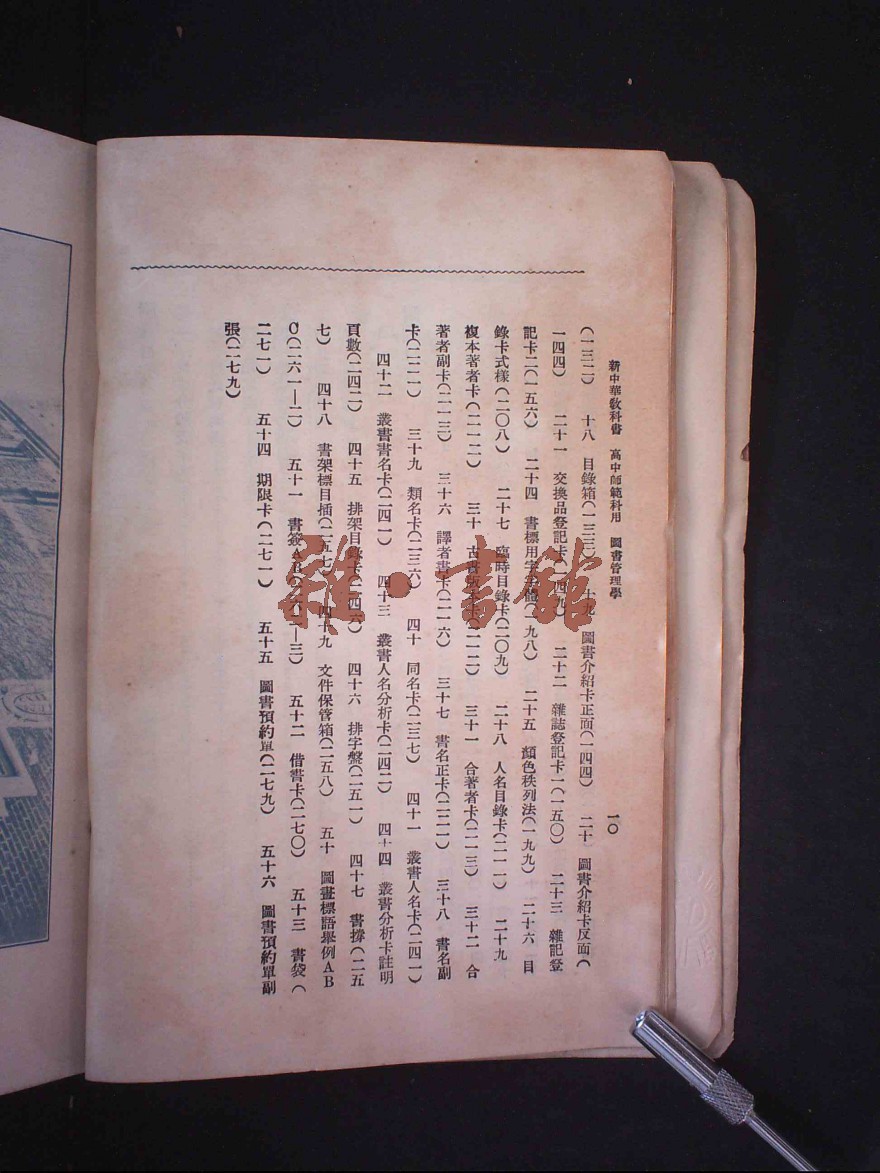 新中華教科書 高中師範科用 圖書管理學 一〇
(一三二) 十八 目錄箱(一三三) 十九 圖書介紹卡正面(一四四) 二十 圖書介紹卡反面(
一四四) 二十一 交換品登記卡(一四九) 二十二 雜誌登記卡一(一五〇) 二十三 雜記登
記卡二(一五六) 二十四 書標用字字體(一九八) 二十五 顏色秩列法(一九九) 二十六 目
錄卡式樣(二〇八) 二十七 臨時目錄卡(二〇九) 二十八 人名目錄卡(二一一) 二十九
複本著者卡(二一二) 三十 古書版本卡(二一二) 三十一 合著者卡(二一三) 三十二 合
著者副卡(二一三) 三十六 譯者書卡(二一六) 三十七 書名正卡(二二一) 三十八 書名副
卡(二二一) 三十九 類名卡(二三六) 四十 同名卡(二三七) 四十一 叢書人名卡(二四一)
四十二 叢書書名卡(二四一) 四十三 叢書人名分析卡(二四二) 四十四 叢書分析卡註明
頁數(二四二) 四十五 排架目錄卡(二四六) 四十六 排字盤(二五一) 四十七 書撐(二五
七) 四十八 書架標目插(二五七) 四十九 文件保管箱(二五八) 五十 圖畫標語舉例AB
C(二六一—二) 五十一 書簽AB(二六二—三) 五十二 借書卡(二七〇) 五十三 書袋(
二七一) 五十四 期限卡(二七一) 五十五 圖書預約單(二七九) 五十六 圖書預約單副
張(二七九)
雜·書館